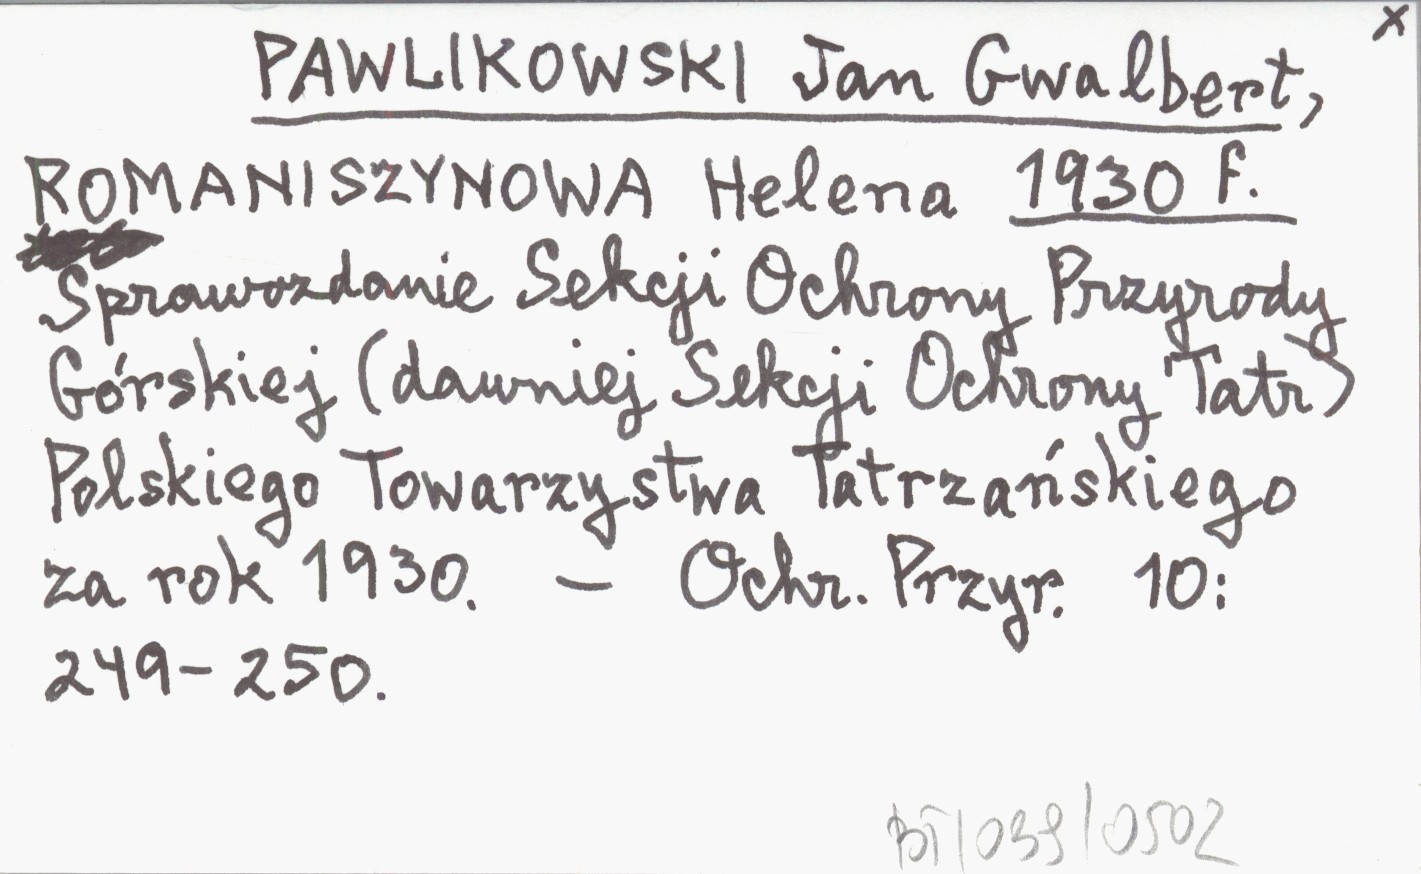 x
PAWLIKOWSKI Jan Gwalbert,
ROMANISZYNOWA Helena 1930 F.
Sprawozdanie Sekcji Ochrony Przyrody
Górskiej (dawniej Sekcji Ochrony Tatr)
Polskiego Towarzystwa Tatrzańskiego
za rok 1930. – Ochr. Przyr. 10:
249–250.
BT/039/0502